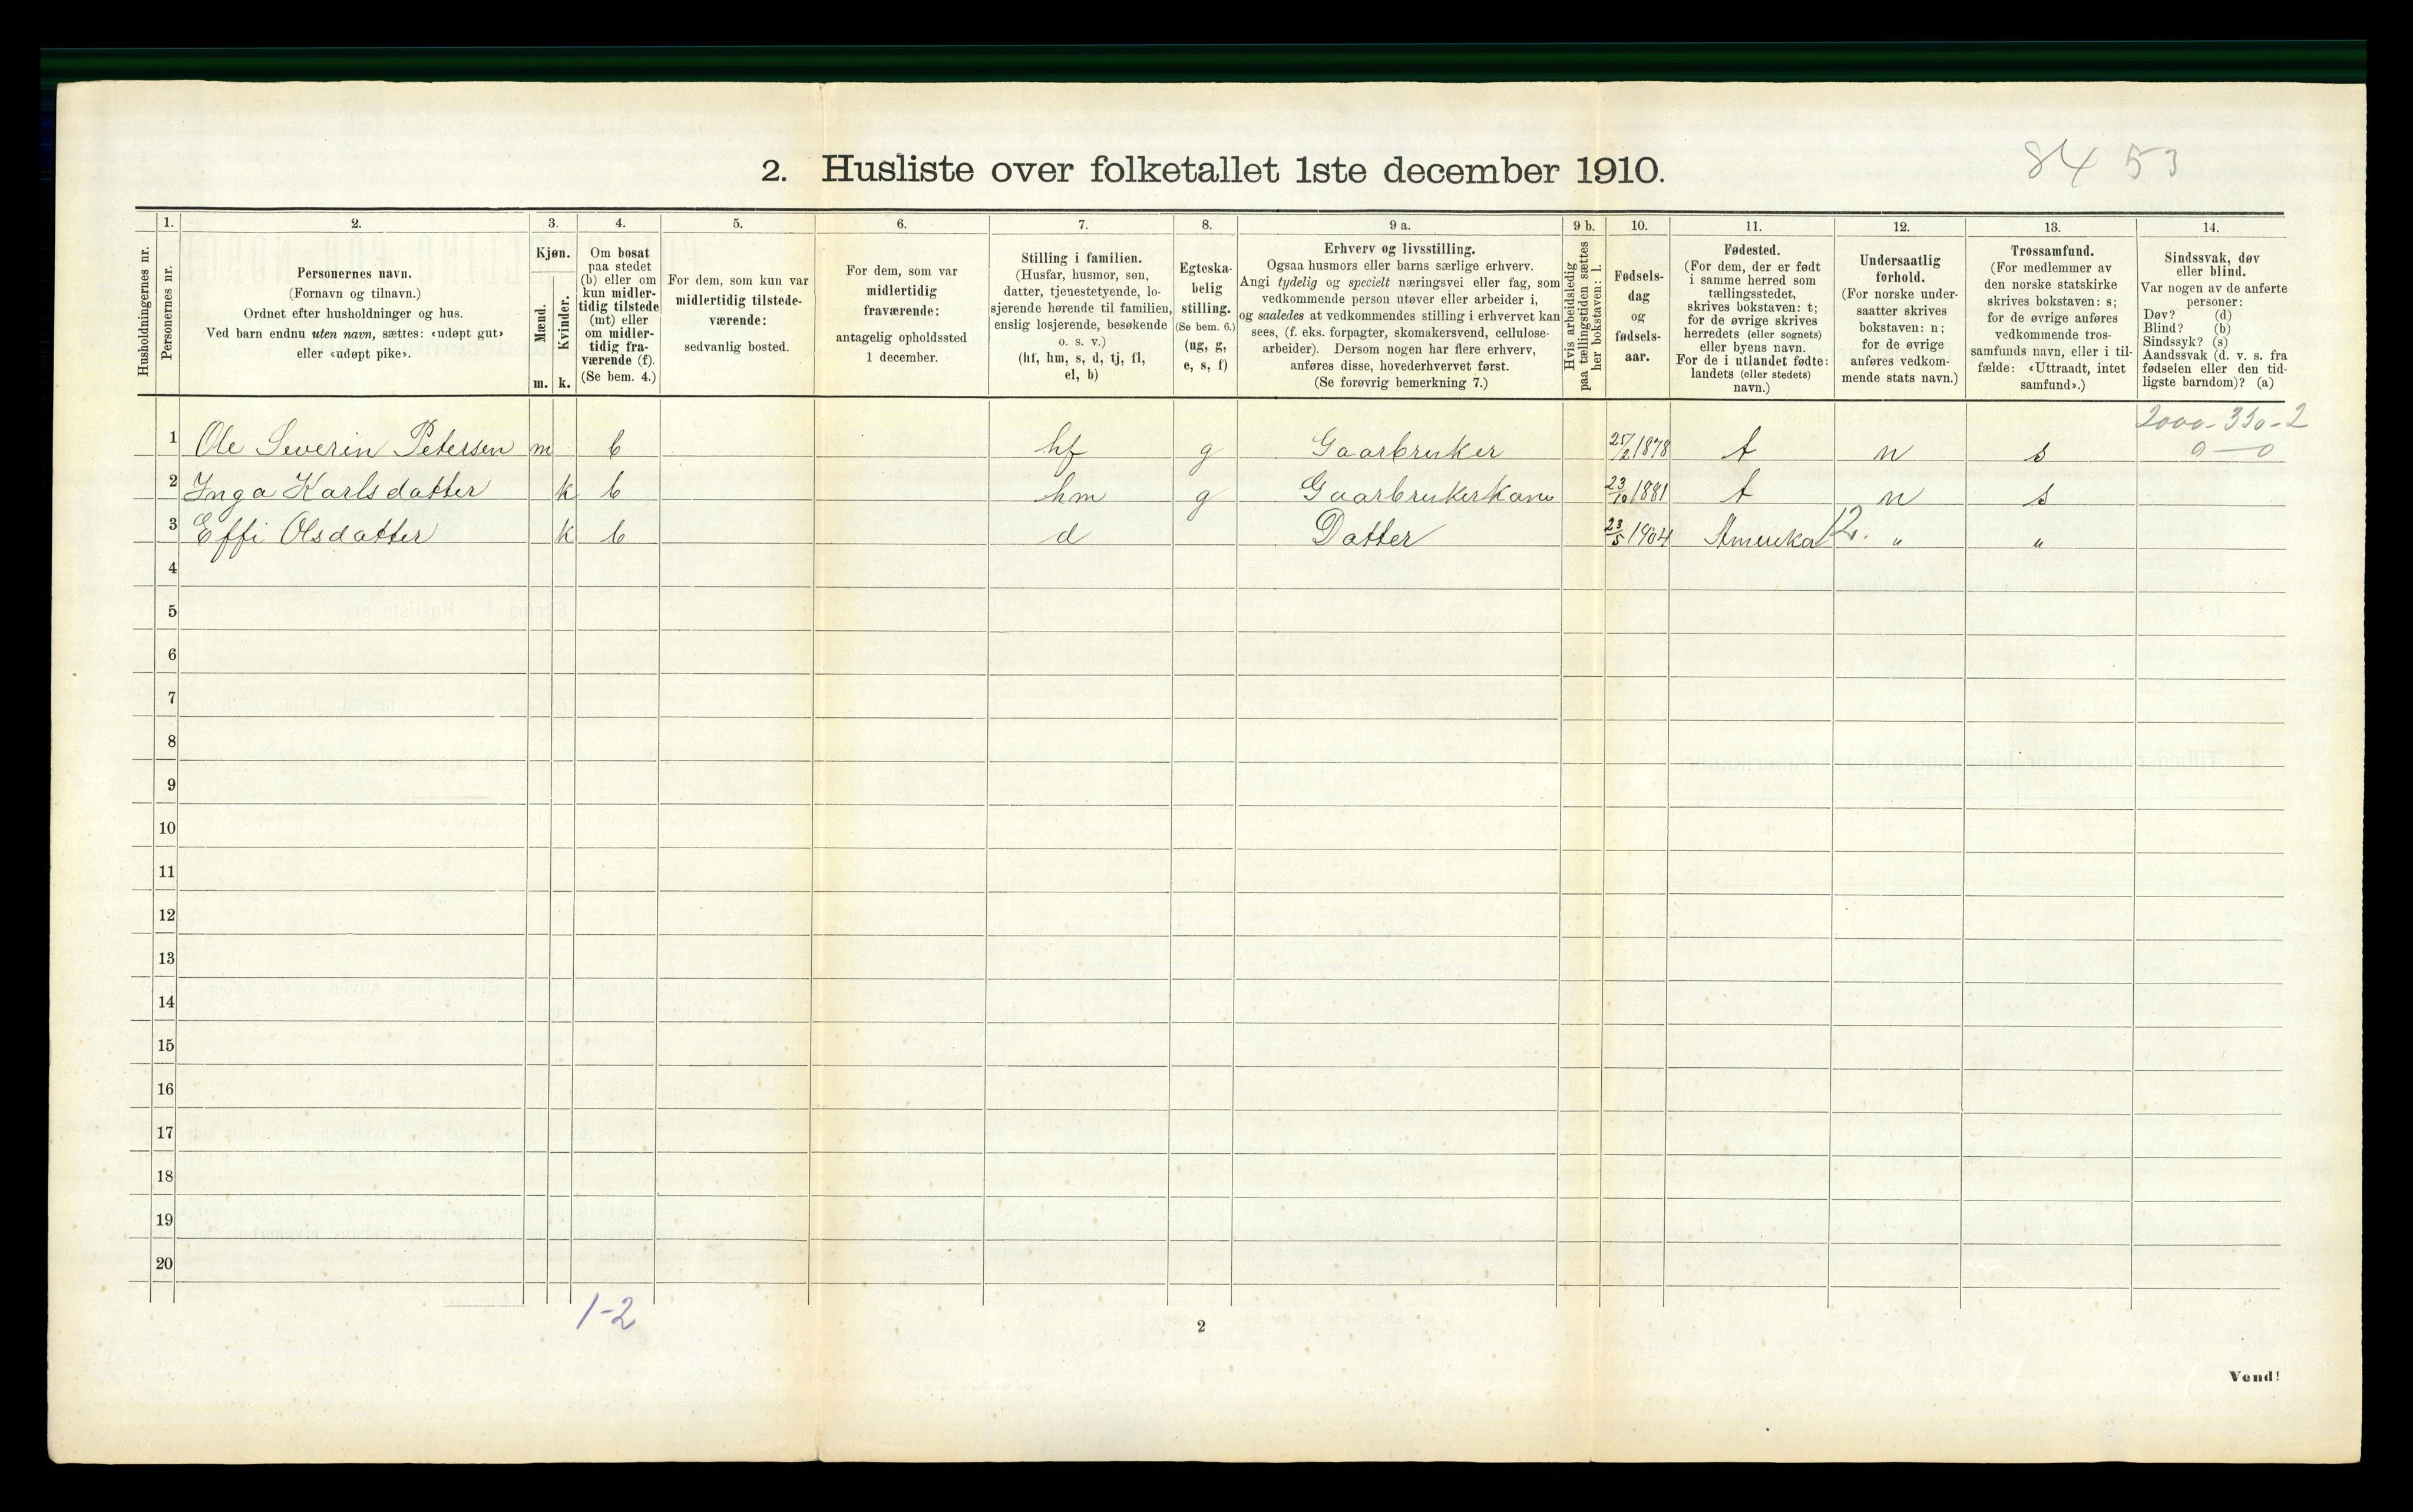 84 53
2. Husliste over folketallet 1ste december 1910.
Husholdningernes nr.
1.
Personernes nr.
2.
Personernes navn.
(Fornavn og tilnavn.)
Ordnet efter husholdninger og hus.
Ved barn endnu uten navn, sættes: «udøpt gut»
eller «udøpt pike».
3.
Kjøn.
Mænd.
Kvinder.
m. k.
4.
Om bosat
paa stedet
(b) eller om
kun midler-
tidig tilstede
(mt) eller
om midler-
tidig fra-
værende (f).
(Se bem. 4.)
5.
For dem, som kun var
midlertidig tilstede-
værende:
sedvanlig bosted.
6.
For dem, som var
midlertidig
fraværende:
antagelig opholdssted
1 december.
7.
Stilling i familien.
(Husfar, husmor, søn,
datter, tjenestetyende, lo-
sjerende hørende til familien,
enslig losjerende, besøkende
o. s. v.)
(hf, hm, s, d, tj, fl,
el, b)
8.
Egteska-
belig
stilling.
(Se bem. 6.)
(ug, g,
e, s, f)
9 a.
Erhverv og livsstilling.
Ogsaa husmors eller barns særlige erhverv.
Angi tydelig og specielt næringsvei eller fag, som
vedkommende person utøver eller arbeider i,
og saaledes at vedkommendes stilling i erhvervet kan
sees, (f. eks. forpagter, skomakersvend, cellulose-
arbeider). Dersom nogen har flere erhverv,
anføres disse, hovederhvervet først.
(Se forøvrig bemerkning 7.)
9 b.
Hvis arbeidsledig
paa tællingstiden sættes
her bokstaven: l.
10.
Fødsels-
dag
og
fødsels-
aar.
11.
Fødested.
(For dem, der er født
i samme herred som
tællingsstedet,
skrives bokstaven: t;
for de øvrige skrives
herredets (eller sognets)
eller byens navn.
For de i utlandet fødte:
landets (eller stedets)
navn.)
12.
Undersaatlig
forhold.
(For norske under-
saatter skrives
bokstaven: n;
for de øvrige
anføres vedkom-
mende stats navn.)
13.
Trossamfund.
(For medlemmer av
den norske statskirke
skrives bokstaven: s;
for de øvrige anføres
vedkommende tros-
samfunds navn, eller i til-
fælde: «Uttraadt, intet
samfund».)
14.
Sindssvak, døv
eller blind.
Var nogen av de anførte
personer:
Døv? (d)
Blind? (b)
Sindssyk? (s)
Aandssvak (d. v. s. fra
fødselen eller den tid-
ligste barndom)? (a)
2000-350-2
0 — 0
1 Ole Severin Petersen m b hf g Gaarbruker 25/2 1878 t n s
2 Inga Karlsdatter k b hm g Gaarbrukerkone 23/10 1881 t n s
3 Effi Olsdatter k b d Datter 23/5 1904 Amerika 12. " "
4
5
6
7
8
9
10
11
12
13
14
15
16
17
18
19
20
1-2
2
Vend!